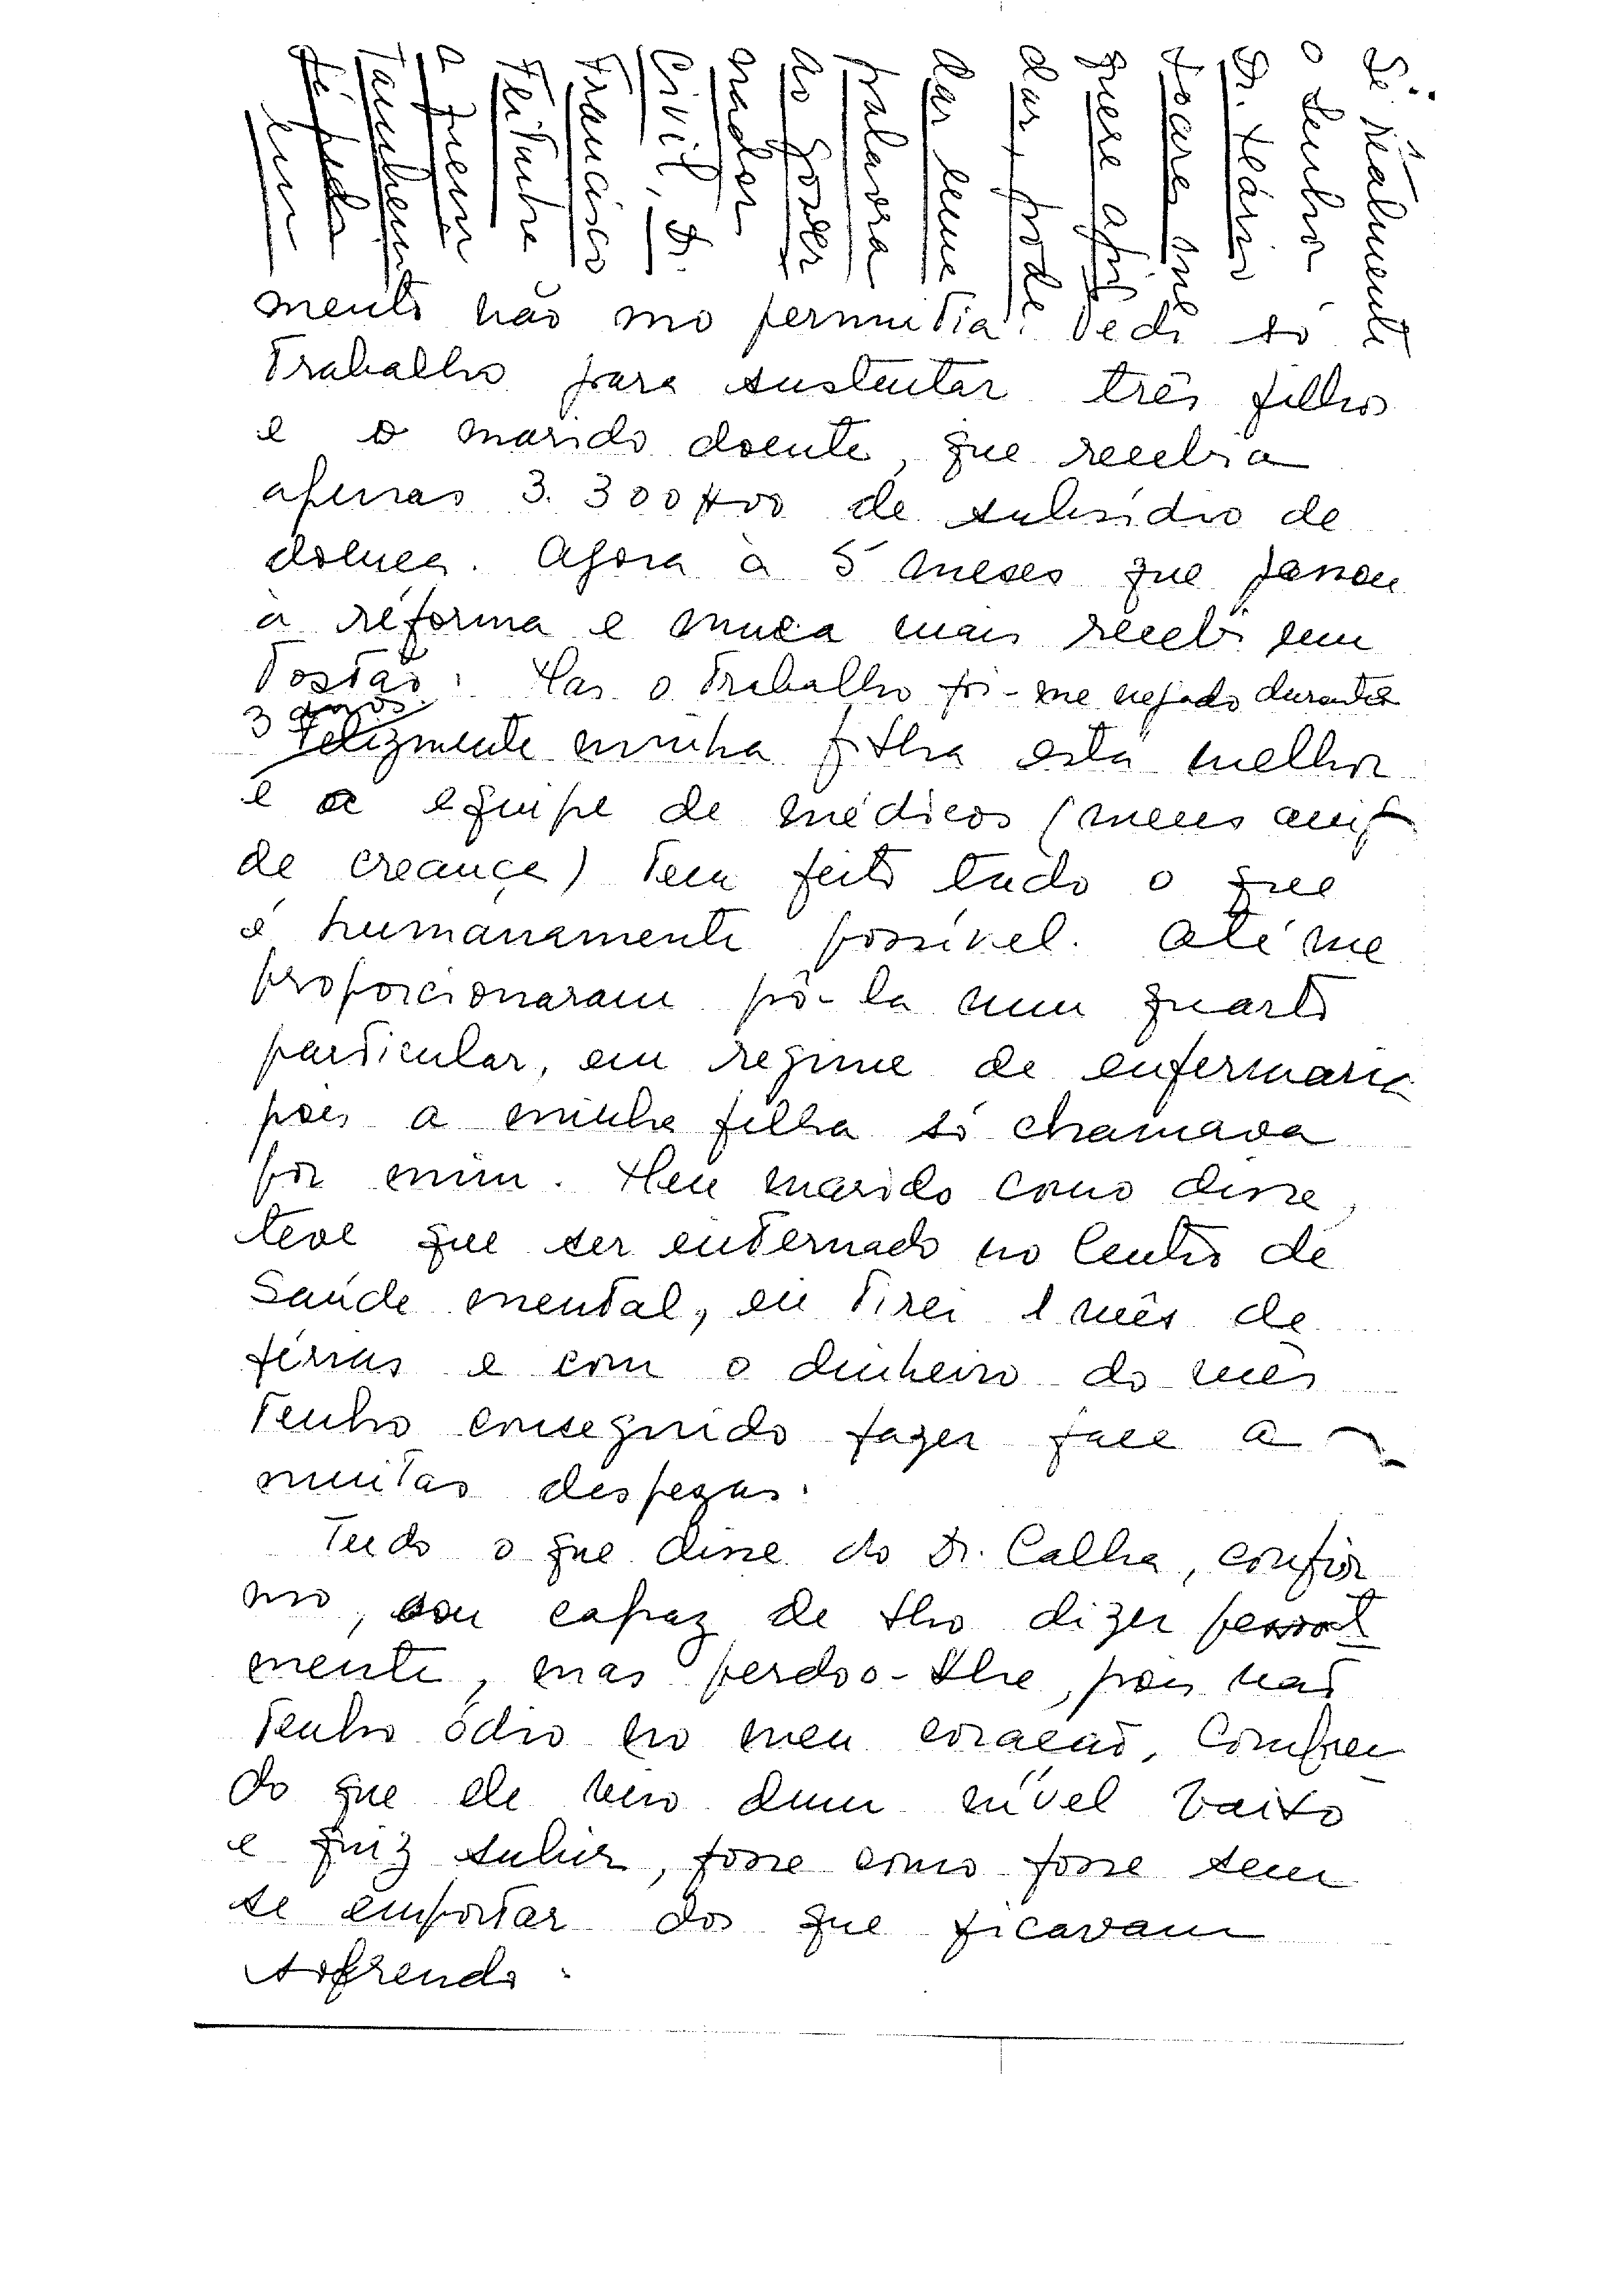 Se realmente
o Senhor
Dr. Mário
Soares me
quere aju
dar, pode
dar uma
palavra
ao Gover
nador
Civil, Dr.
Francisco
a quem
também
já pedi
em
mento não mo permitia. Pedi só
Trabalho para sustentar três filhos
e o marido doente, que recebia
apenas 3.300$00 de subsídio de
doença. Agora à 5 meses que passou
à reforma e nunca mais recebi um
Tostão. Mas o Trabalho foi-me negado durante
3 anos.
Felizmente minha filha está melhor
e a equipe de médicos (meus amig
de creança) Tem feito tudo o que
é humanamente possível. Até me
proporcionaram pô-la num quarto
particular, em regime de enfermaria
pois a minha filha só chamava
por mim. Meu marido como disse,
teve que ser enternado no Centro de
Saúde mental, eu Tirei 1 mês de
férias e com o dinheiro do mês
Tenho conseguido fazer face a
muitas despezas.
Tudo o que disse do Dr. Calha, confir
mo, sou capaz de lho dizer pessoal
mente, mas perdoo-lhe, pois não
Tenho ódio no meu coração, Compreen
do que ele veio dum nível baixo
e quiz subir, fosse como fosse sem
se emportar dos que ficavam
sofrendo.